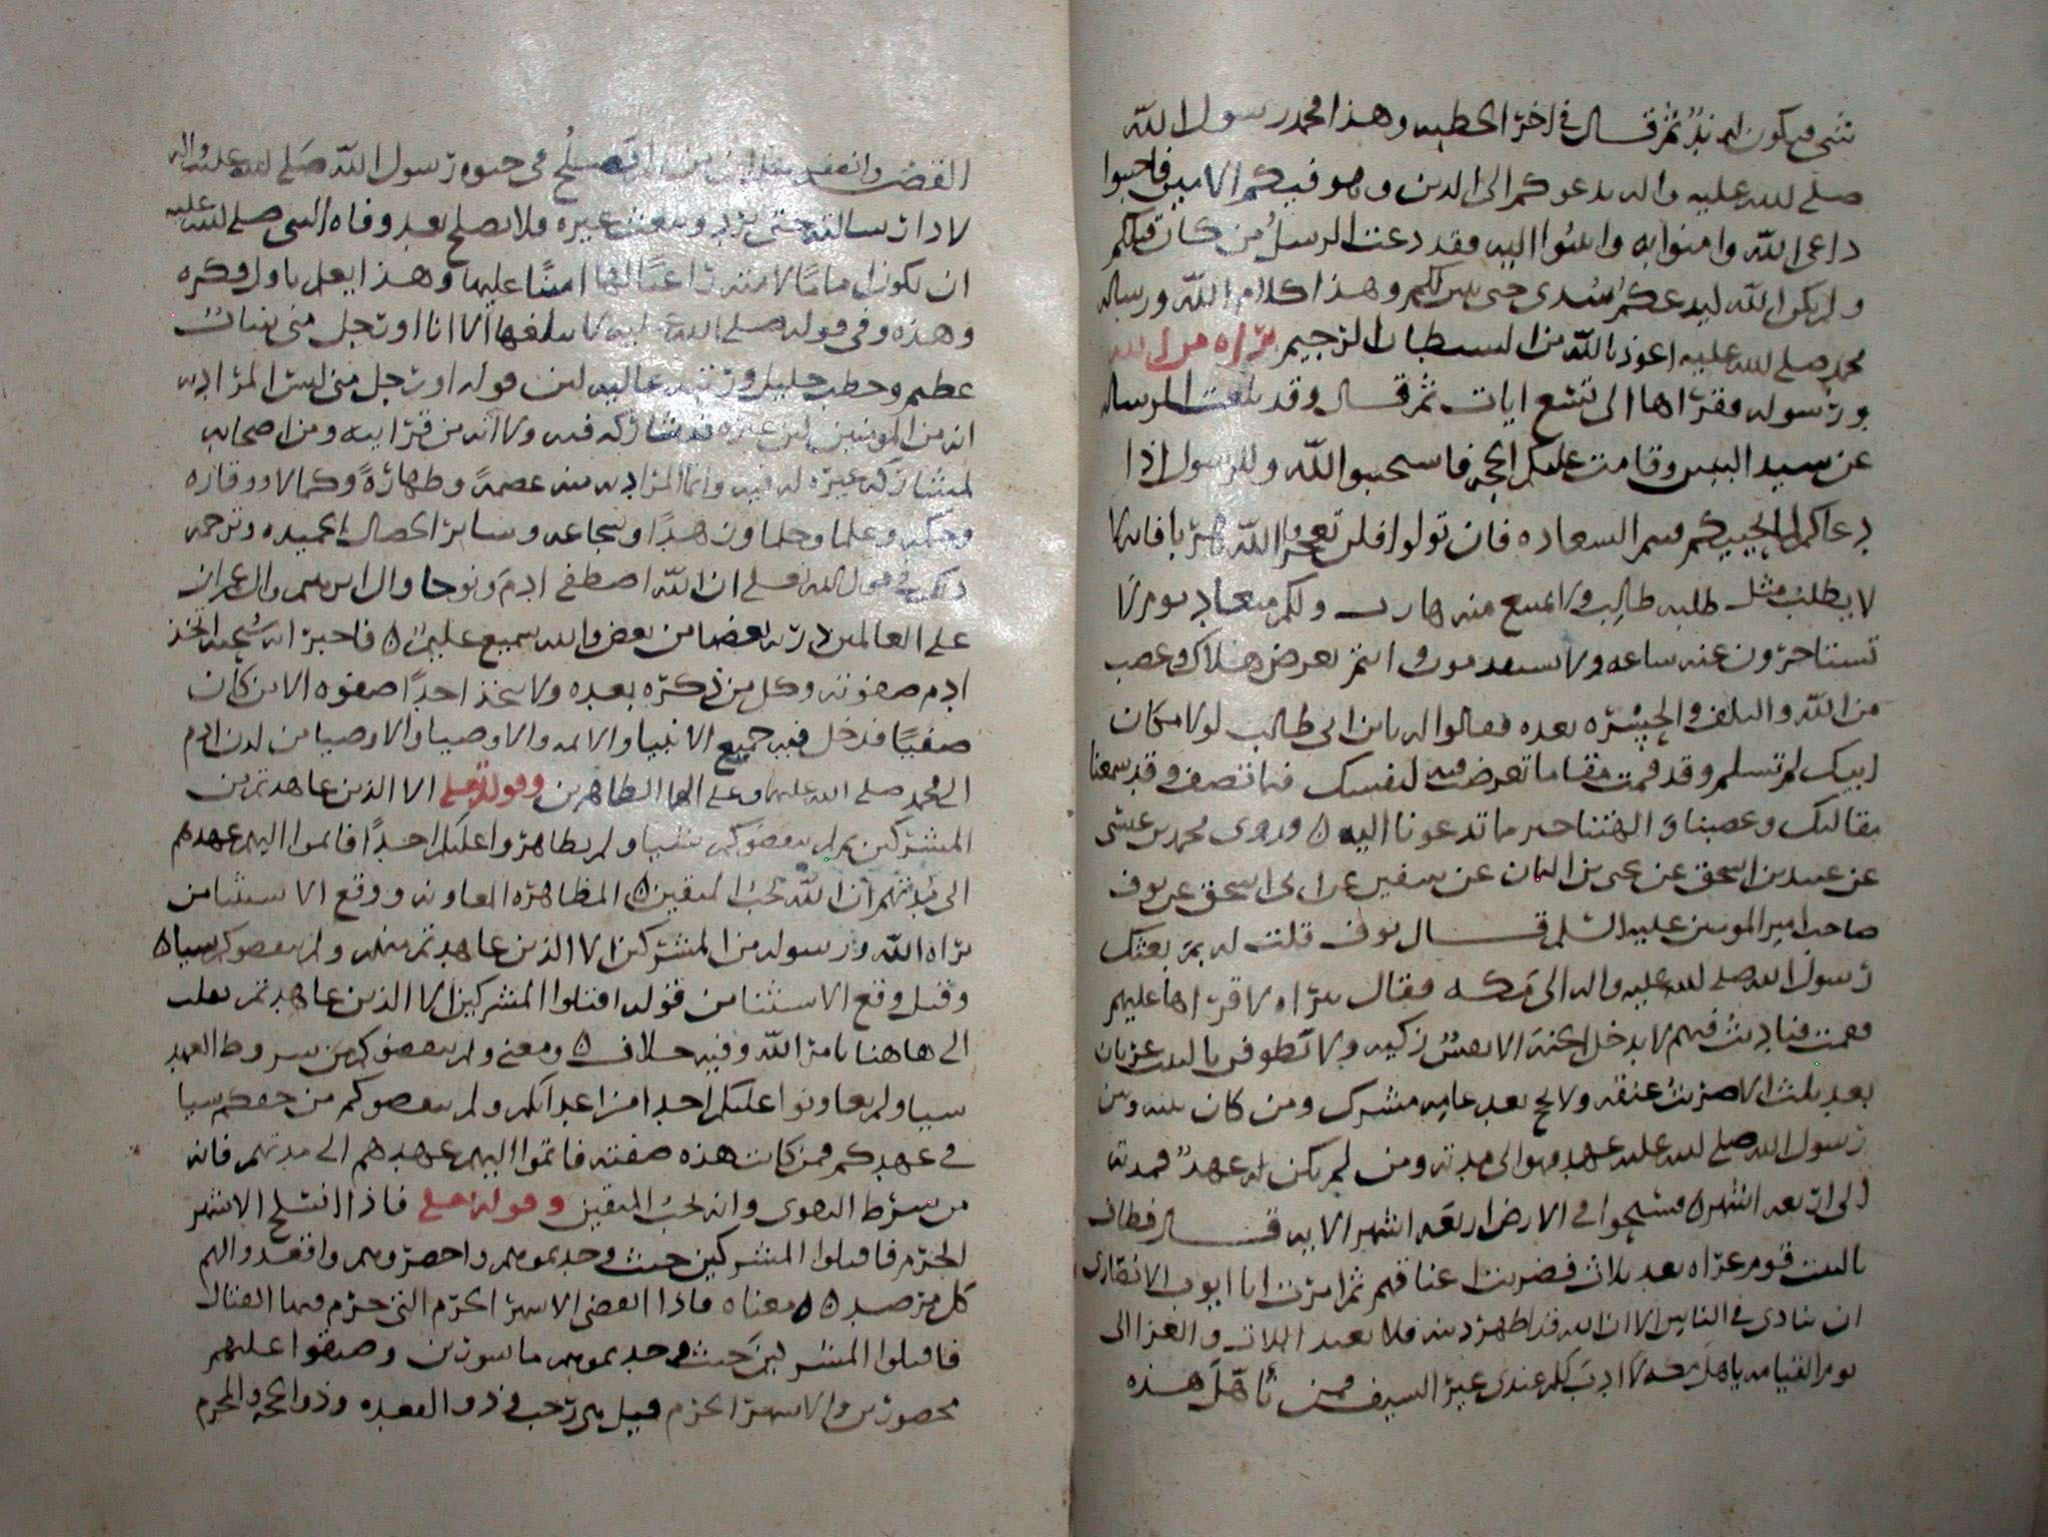 شي فيكون له ند ثم قال في اخر الخطبه وهذا محمد رسول الله
صلى لله عليه واله يدعوكم الى الدين وهو فيكم الامين فاجيبوا
داعي الله وامنوا به وانيبوا اليه فقد دعت الرسل من كان قبلكم
ولم يكن الله ليدعكم سدى حتى يبين لكم وهذا كلام الله ورساله
محمد صلى لله عليه اعوذ بالله من الشيطان الرجيم براه من الله
ورسوله فقراها الى تسع ايات ثم قال وقد بلغت الرساله
عن سيد وقامت عليكم الحجه فاستجيبوا لله وللرسول اذا
دعاكم لما يحييكم السعاده فان تولوا فلن تعجزوا الله هربا فانه لا
لا يطلب مثل طلبه طالب ولا يمتنع منه هارب ولكم ميعاد يوم لا
تستاخرون عنه ساعه ولا تستقدمون وانتم بعرض هلاك وغضب
من الله والتلف والحسره بعده فقالوا له يا بن ابي طالب لولا مكان
ابيك لم تسلم وقد قمت مقاما تعرض فيه لنفسك فما تنصف وقد سمعنا
مقالتك وعصينا والهتنا خير ما تدعونا اليه ٥ وروى محمد بن عيسى
عن عبيد بن اسحق عن يحيى بن اليمان عن سفين عن ابي اسحق عن نوف
صاحب امير المومنين عليه السلم قال نوف قلت له بم بعثك
رسول الله صلى لله عليه واله الى مكه فقال ببراه لاقراها عليهم
فقمت فناديت فيهم لا يدخل الجنة الا نفس زكيه ولا تطوفن بالبيت عريان
بعد ثلث الا ضربت عنقه ولا يحج بعد عامه مشرك ومن كان بينه وبين
رسول الله صلى لله عليه عهد فهو الى مدته ومن لم يكن له عهد فمدته
الى اربعه اشهر ٥ فسيحوا في الارض اربعه اشهر الايه قال فطاف
بالبيت قوم عراه بعد ثلاث فضربت اعناقهم ثم امرت ابا ايوب الانصاري
ان ينادي في الناس الا ان الله قد اظهر دينه فلا يعبد اللات والعزا الى
يوم القيامه يا هل مكه لا ادب لكم عندي غير السيف فمن تامل هذه
القضيه وانصف علم ان من لم يصلح في حيوه رسول الله صلى لله عليه واله
لادا رسالته حتى يرد ويبعث غيره فلا يصلح بعد وفاه النبي صلى لله عليه
ان يكون اماما لامته راعيا لها امينا عليها وهذا يعلم باول فكره
وهذه وفي قوله صلى الله عليه لا يبلغها الا انا او رجل مني بيان
عظيم وخطب جليل ورتبه عاليه لمن قوله او رجل مني ليس المراد به
انه من المومنين لان غيره قد شاركه فيه ولا انه من قرابته ومن اصحابه
لمشاركه غيره له فيه وانما المراد به منه عصمة وطهارة وكمالا ووقاره
وحكمه وعلما وحلما وزهدا وشجاعه وساير الخصال الحميده وترجمه
ذلك في قول الله تعلى ان الله اصطفى ادم ونوحا وال ابرهيم وال عمران
على العالمين ذريه بعضها من بعض والله سميع عليم ٥ فاخبر انه سبحنه اتخذ
ادم صفوته وكل من ذكره بعده ولا يتخذ احدا صفوه الا من كان
صفيا فدخل فيه جميع الانبيا والايمه والاوصيا والاوصيا من لدن ادم
الى محمد صلى الله عليهما وعلى الهما الطاهرين وقوله تعلى الا الذين عاهدتم من
المشركين ثم لم ينقصوكم شيئا ولم يظاهروا عليكم احدا فاتموا اليهم عهدهم
الى مدتهم ان الله يحب المتقين ٥ المظاهره المعاونه ووقع الاستثنا من
براه الله ورسوله من المشركين الا الذين عاهدتم منهم ولم ينقصوكم شيا ٥
وقيل وقع الاستثنا من قوله اقتلوا المشركين الا الذين عاهدتم
الى هاهنا بامر الله وفيه خلاف ٥ ومعنى ولم ينقصوكم من شروط العهد
شيا ولم يعاونوا عليكم احدا من اعدايكم ولم ينقصوكم من حقكم شيا
في عهدكم فمن كانت هذه صفته فاتموا اليهم عهدهم الى مدتهم فانه
من شرط التقوى وانه يحب المتقين وقوله تعلى فاذا انسلخ الاشهر
الحرم فاقتلوا المشركين حيث وجدتموهم واحصروهم واقعدوا لهم
كل مرصد ٥ ٥ معناه فاذا انقضى الاشهر الحرم التي حرم فيها القتال
فاقتلوا المشركين حيث وجدتموهم ماسورين وضيقوا عليهم
محصورين والاشهر الحرم قيل هي رجب وذو القعده وذو الحجه والمحرم